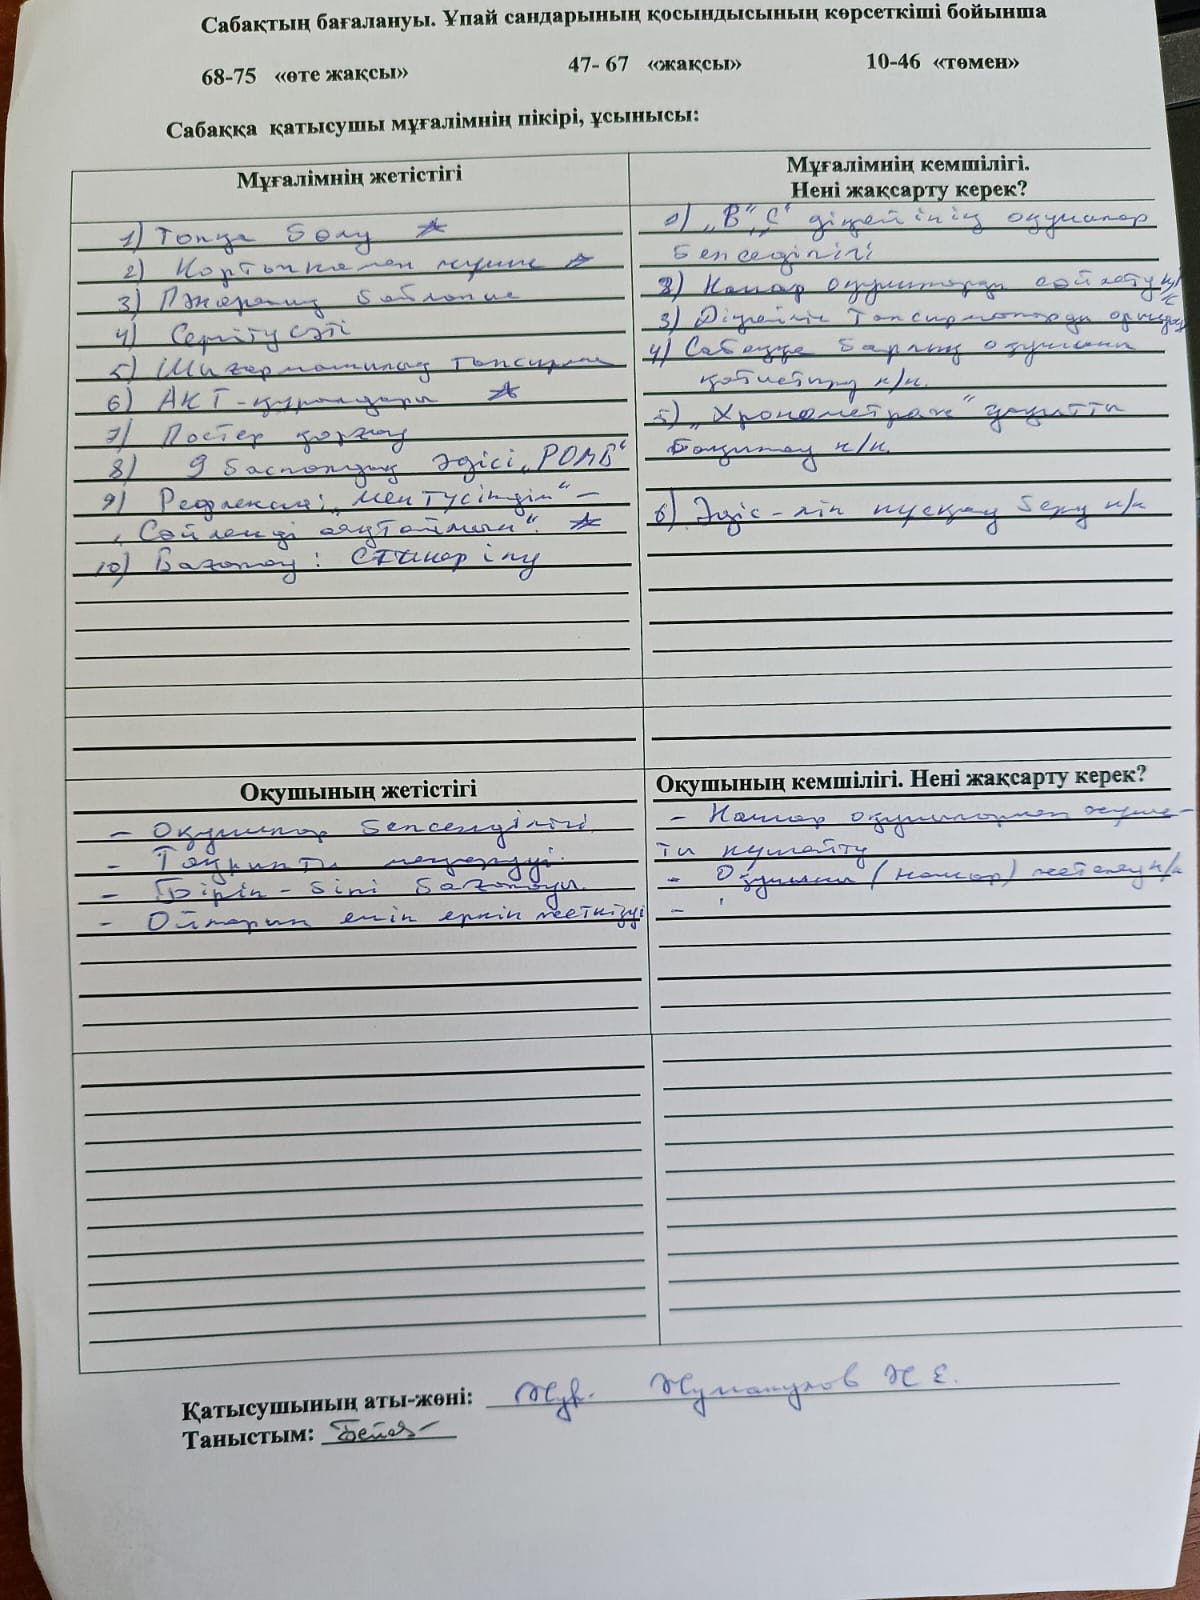 Сабақтың бағалануы. Ұпай сандарының қосындысының көрсеткіші бойынша
68-75 «өте жақсы» 47- 67 «жақсы» 10-46 «төмен»
Сабаққа қатысушы мұғалімнің пікірі, ұсынысы:
Мұғалімнің жетістігі
1) Топқа бөлу
2) Карточкамен жұмыс
3) Пәнаралық байланыс
4) Сергіту сәті
5) Шығармашылық тапсырма
6) АКТ-құралдары
7) Постер қорғау
8) 9 баспалдақ әдісі „РОМБ“
9) Рефлексия: „Мен түсіндім“ –
„Сөйлемді аяқтаймын“.
10) Бағалау: Стикер ілу
Мұғалімнің кемшілігі.
Нені жақсарту керек?
1) „В“, „С“ деңгейінің оқушылар
белсенділігі
2) Нашар оқушыларды сөйлету к/к
3) Деңгейлік тапсырмаларды орындау
4) Сабаққа барлық оқушыны
қатыстыру к/к.
5) „Хронометраж“ уақытты
бақылау к/к.
6) Әдіс-лік нұсқау беру к/к
Оқушының жетістігі
– Оқушылар белсенділігі
– Тақырыпты меңгеруі.
– Бірін-бірі бағалауы.
– Ойларын еркін жеткізуі
Оқушының кемшілігі. Нені жақсарту керек?
– Нашар оқушылармен жұмыс-
ты күшейту
– Оқушыны (нашар) жетелеу к/к
–
Қатысушының аты-жөні: Жұмақұлов Ж Е.
Таныстым: